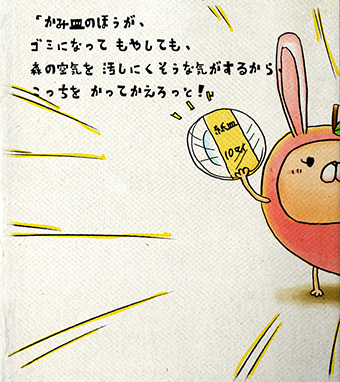 「かみ皿のほうが、
ゴミになって もやしても、
森の空気を 汚しにくそうな気がするから、
こっちを かってかえろっと!」
紙皿
10まい